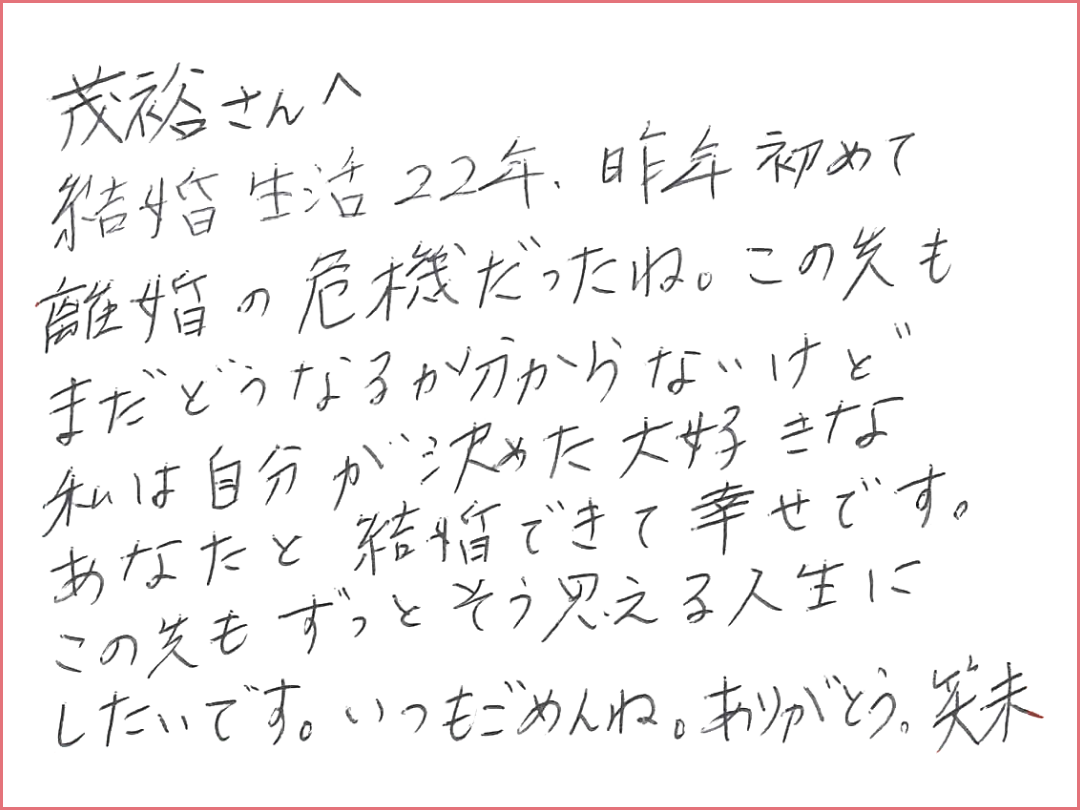 茂裕さんへ
結婚生活22年、昨年初めて
離婚の危機だったね。この先も
まだどうなるか分からないけど
私は自分が決めた大好きな
あなたと結婚できて幸せです。
この先もずっとそう思える人生に
したいです。いつもごめんね。ありがとう。笑未